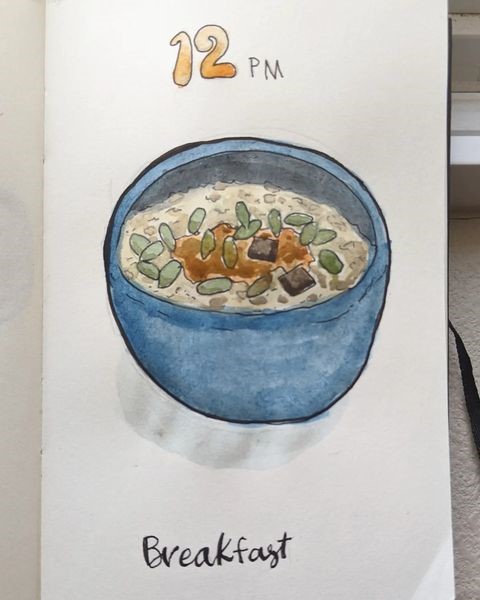 12 PM
Breakfast